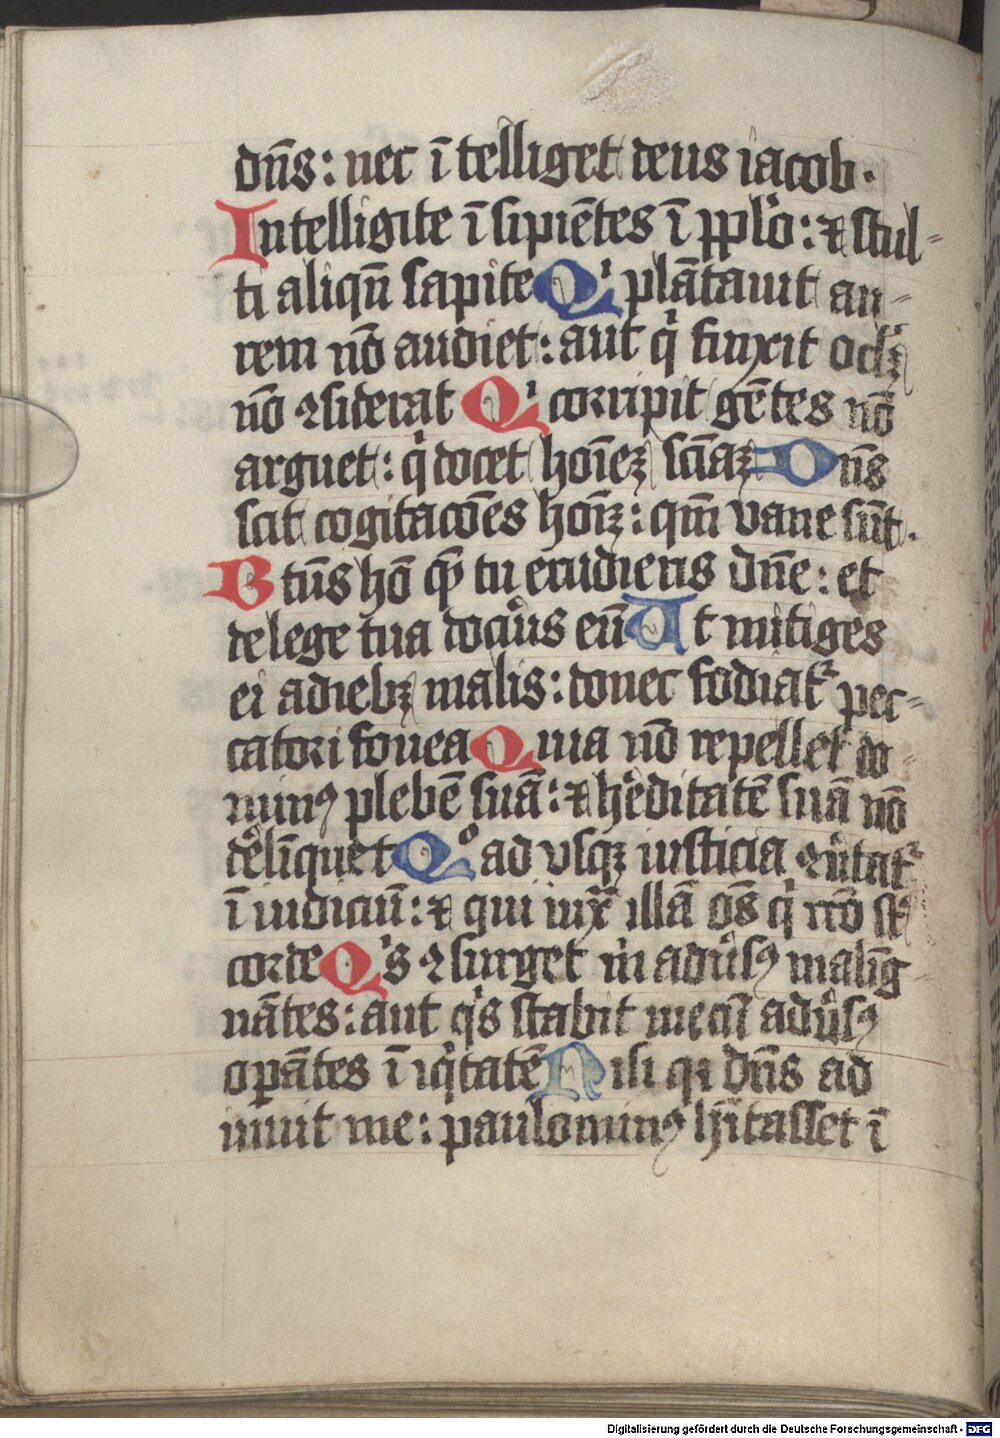 dn̄s: nec ī telliget deus iacob.
Intelligite ī sipiēt̄es ī pplo: ⁊ stul-
ti aliqn̄ sapite Qͥ plātauit au-
rem nō audiet: aut qͥ finxit oclꝫ
nō ꝯsiderat Qͥ corripit gētes nō
arguet: qͥ docet hoīeꝫ sciaꝫ Dn̄s
scit cogitacōes hoīꝫ: qm̄ vane sūt.
Btūs hō quē tu erudieris dn̄e: et
de lege tua docūis eū At mitiges
ei adiebꝫ malis: donec fodiatᷣ pec-
catori fouea Quia nō repellet do-
minꝰ plebē suā: ⁊ hēditatē suā nō
delīquet Qͦ ad vsqꝫ iusticia ꝯūtatᷣ
ī iudiciū: ⁊ qui iuxͣ illā oēs qͥ rcō st̄
corde Qͥs ꝯsurget m̄ adūsꝰ malīg
nātes: aut qͥs stabit mecū adūsꝰ
opātes ī iqͥtatē Nisi qꝛ dn̄s ad
iuuit me: paulominꝰ hītasset ī
Digitalisierung gefördert durch die Deutsche Forschungsgemeinschaft - DFG